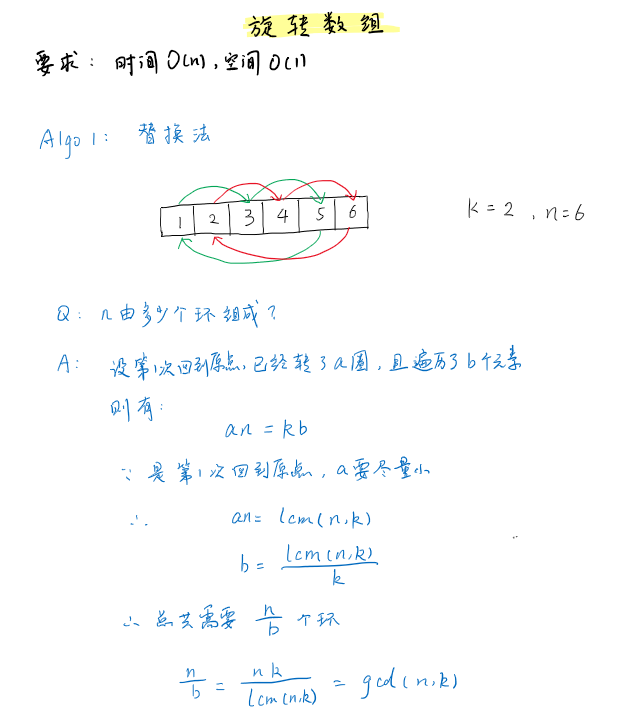 旋转数组
要求: 时间 O(n), 空间 O(1)
Algo 1: 替换法
1 2 3 4 5 6
k = 2, n = 6
Q: n由多少个环组成?
A: 设第1次回到原点,已经转了a圈,且遍历了b个元素
则有:
an = kb
∵ 是第1次回到原点, a要尽量小
∴ an = lcm(n,k)
b = lcm(n,k) / k
∴ 总共需要 n/b 个环
n/b = nk / lcm(n,k) = gcd(n,k)